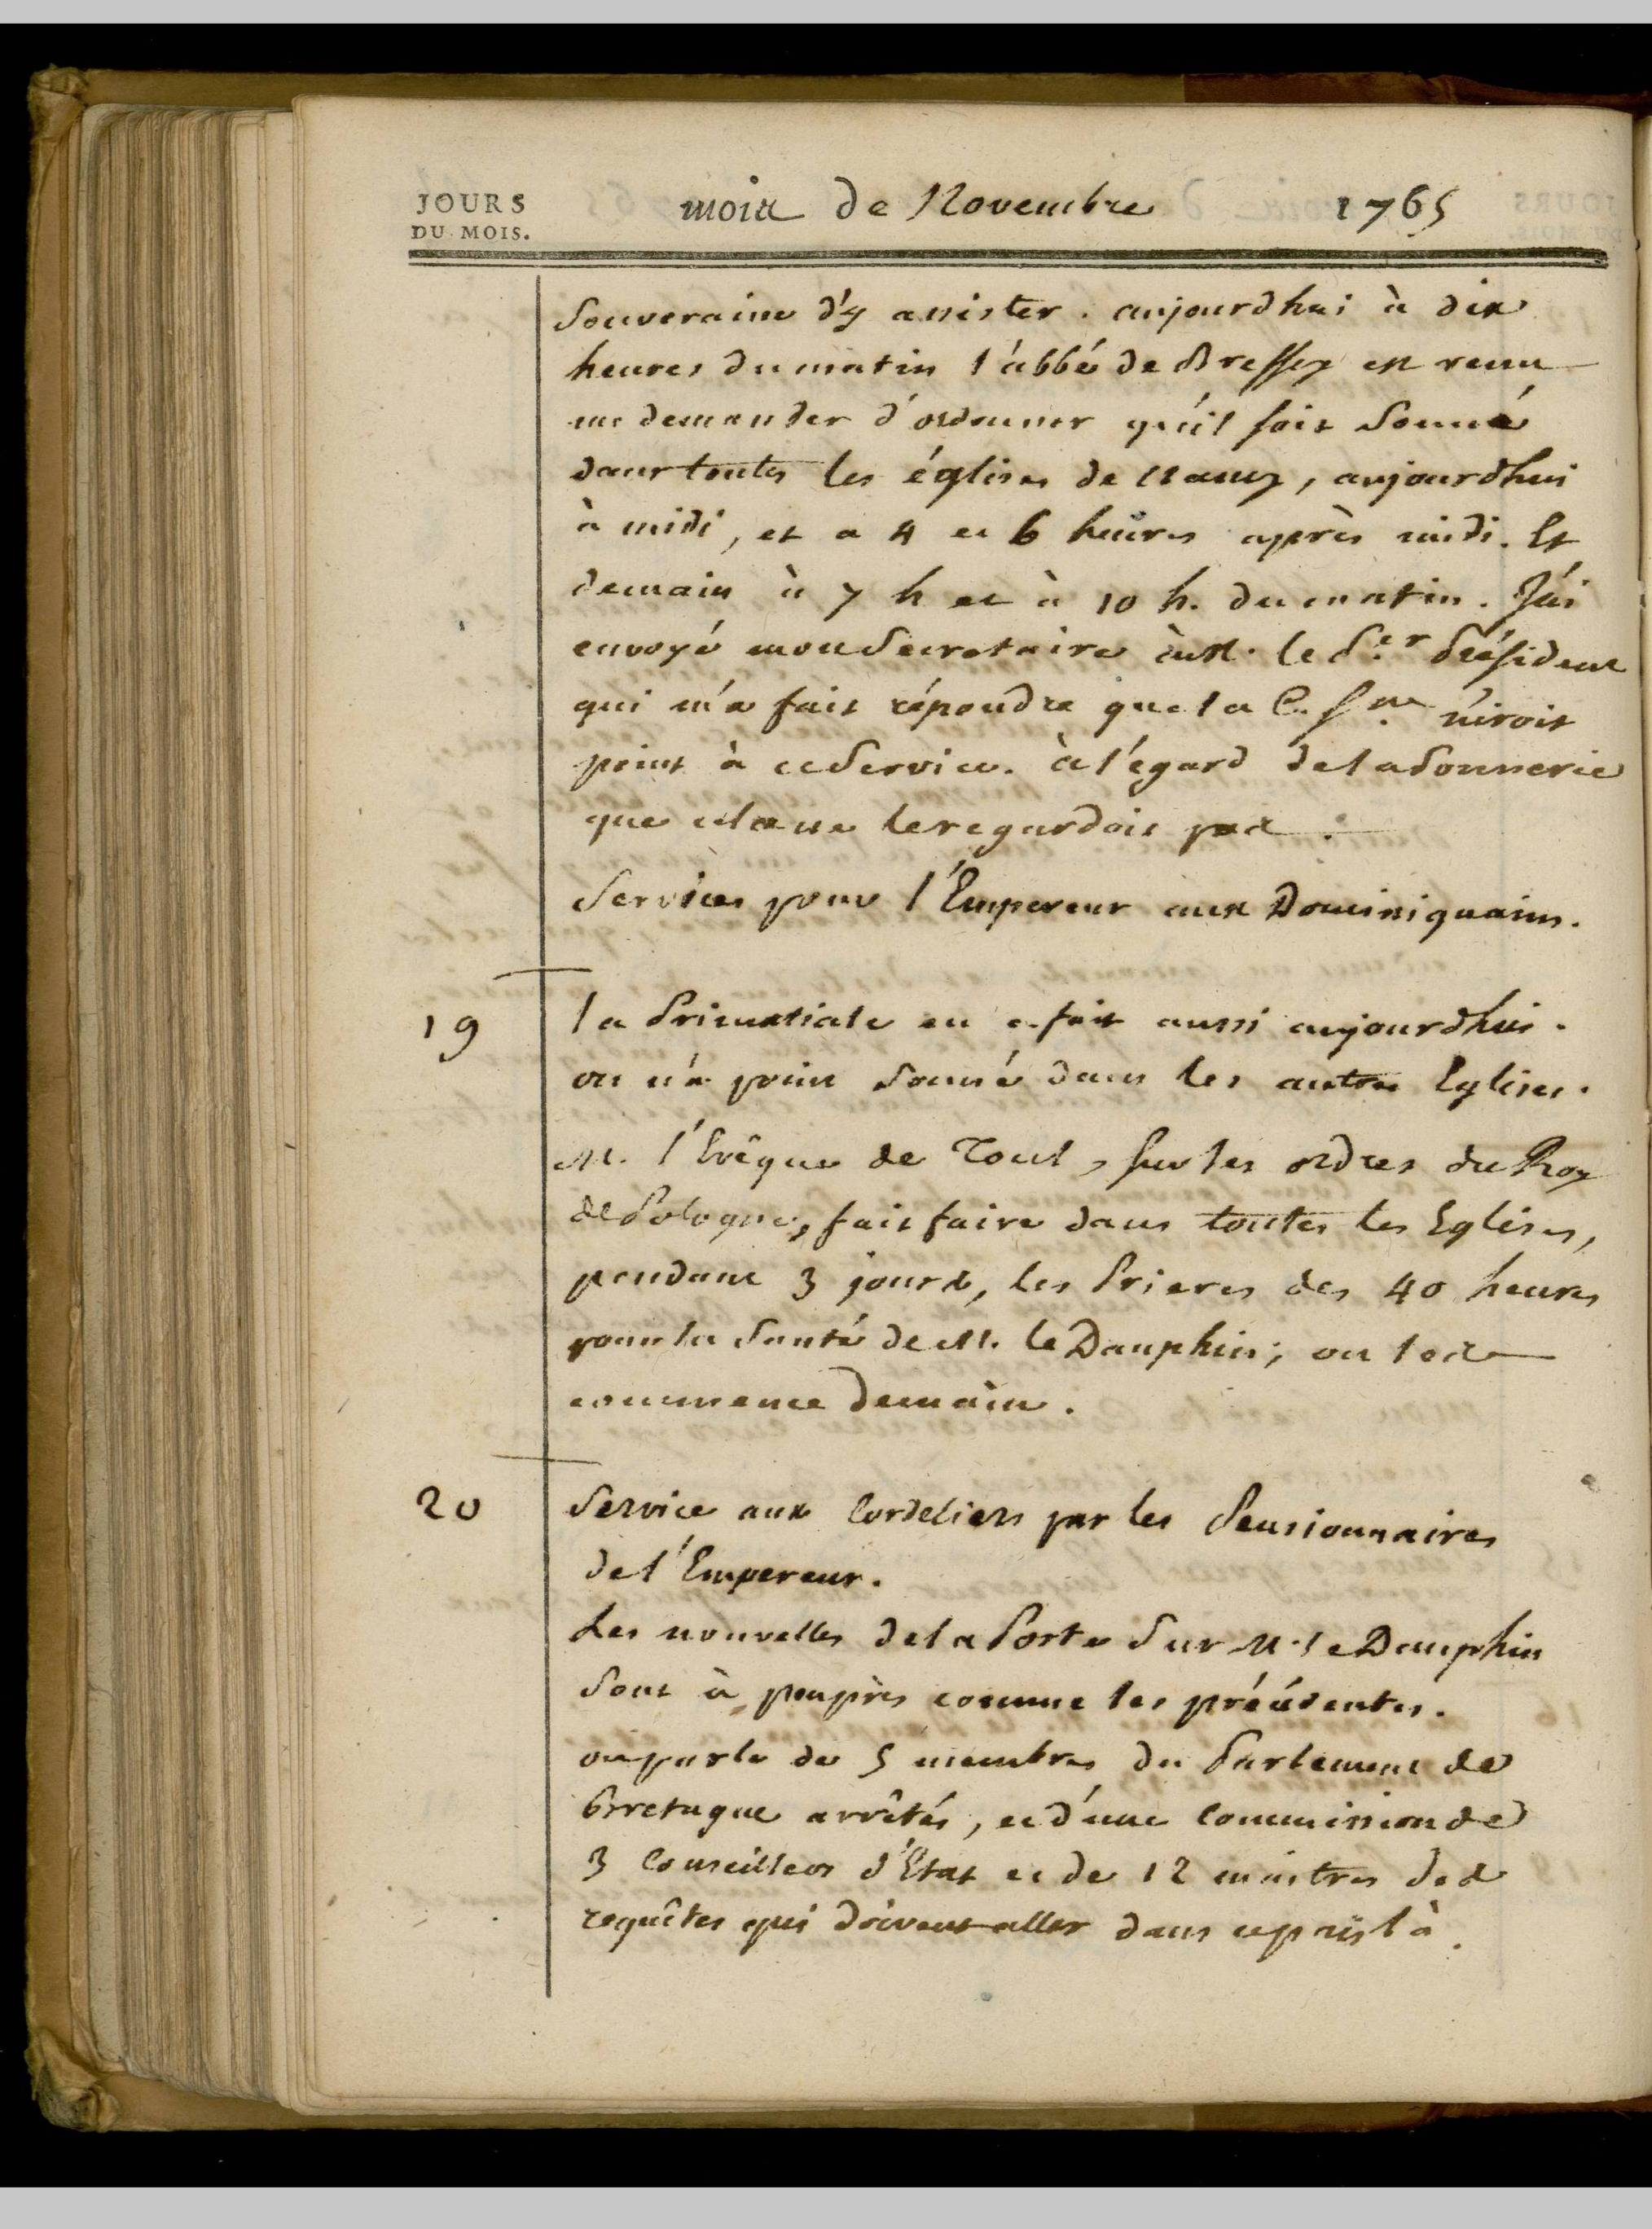 JOURS
DU MOIS.
mois de Novembre 1765
Souveraine d'y assister. aujourdhui à dix
heures du matin l'abbé de Bressey est venu
me demander d'ordonner qu'il soit Sonné
dans toutes les églises de Nancy, aujourdhui
à midi, et a 4 et 6 heures après midi. Et
demain à 7 h et à 10 h. du matin. J'ai
envoyé mon Secretaire à M. le P.er Président
qui m'a fait répondre que la C. S.ne n'iroit
point à ce Service. à l'égard de la Sonnerie
que cela ne le regardoit pas.
Services pour l'Empereur aux Dominiquains.
19
la Primatiale en a fait aussi aujourdhui.
on n'a point Sonné dans les autres Eglises.
M. l'Evêque de Toul, sur les ordres du Roy
de Pologne, fait faire dans toutes les Eglises,
pendant 3 jours, les Prieres des 40 heures
pour la Santé de M. le Dauphin; on les
commence demain.
20
Service aux Cordeliers par les Pensionnaires
de l'Empereur.
Les nouvelles de la Poste Sur M. le Dauphin
Sont à peuprès comme les précédentes.
on parle de 5 membres du Parlement de
Bretagne arrêtés, et d'une Commission de
3 Conseillers d'Etat et de 12 maitres des
requêtes qui doivent aller dans ce païs là.